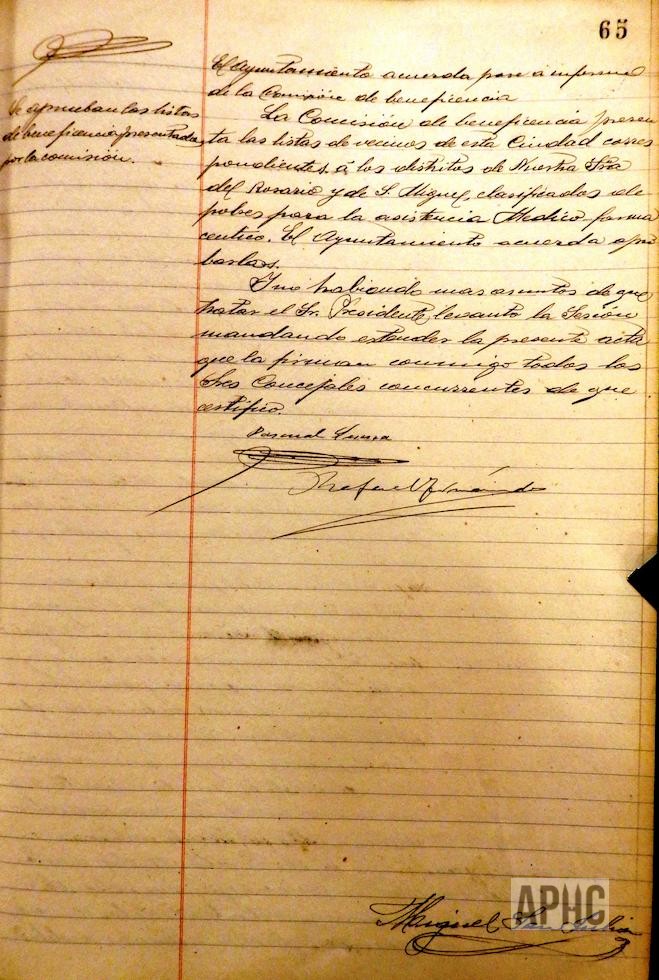 65
El Ayuntamiento acuerda pase a informe
de la Comisión de beneficencia
Se aprueban las listas
de beneficencia presentadas
por la comisión.
La Comisión de beneficencia presen
ta las listas de vecinos de esta Ciudad corres
pondientes á los distritos de Nuestra Sra
del Rosario y de S. Miguel, clasificados de
pobres para la asistencia Medico farma
ceutica. El Ayuntamiento acuerda apro
barlas.
Y no habiendo mas asuntos de que
tratar el Sr. Presidente, levanto la Sesión
mandando estender la presente acta
que la firman conmigo todos los
Sres Concejales concurrentes de que
certifico.
Pascual
Rafael Fernández
Miguel San Julián
APHC